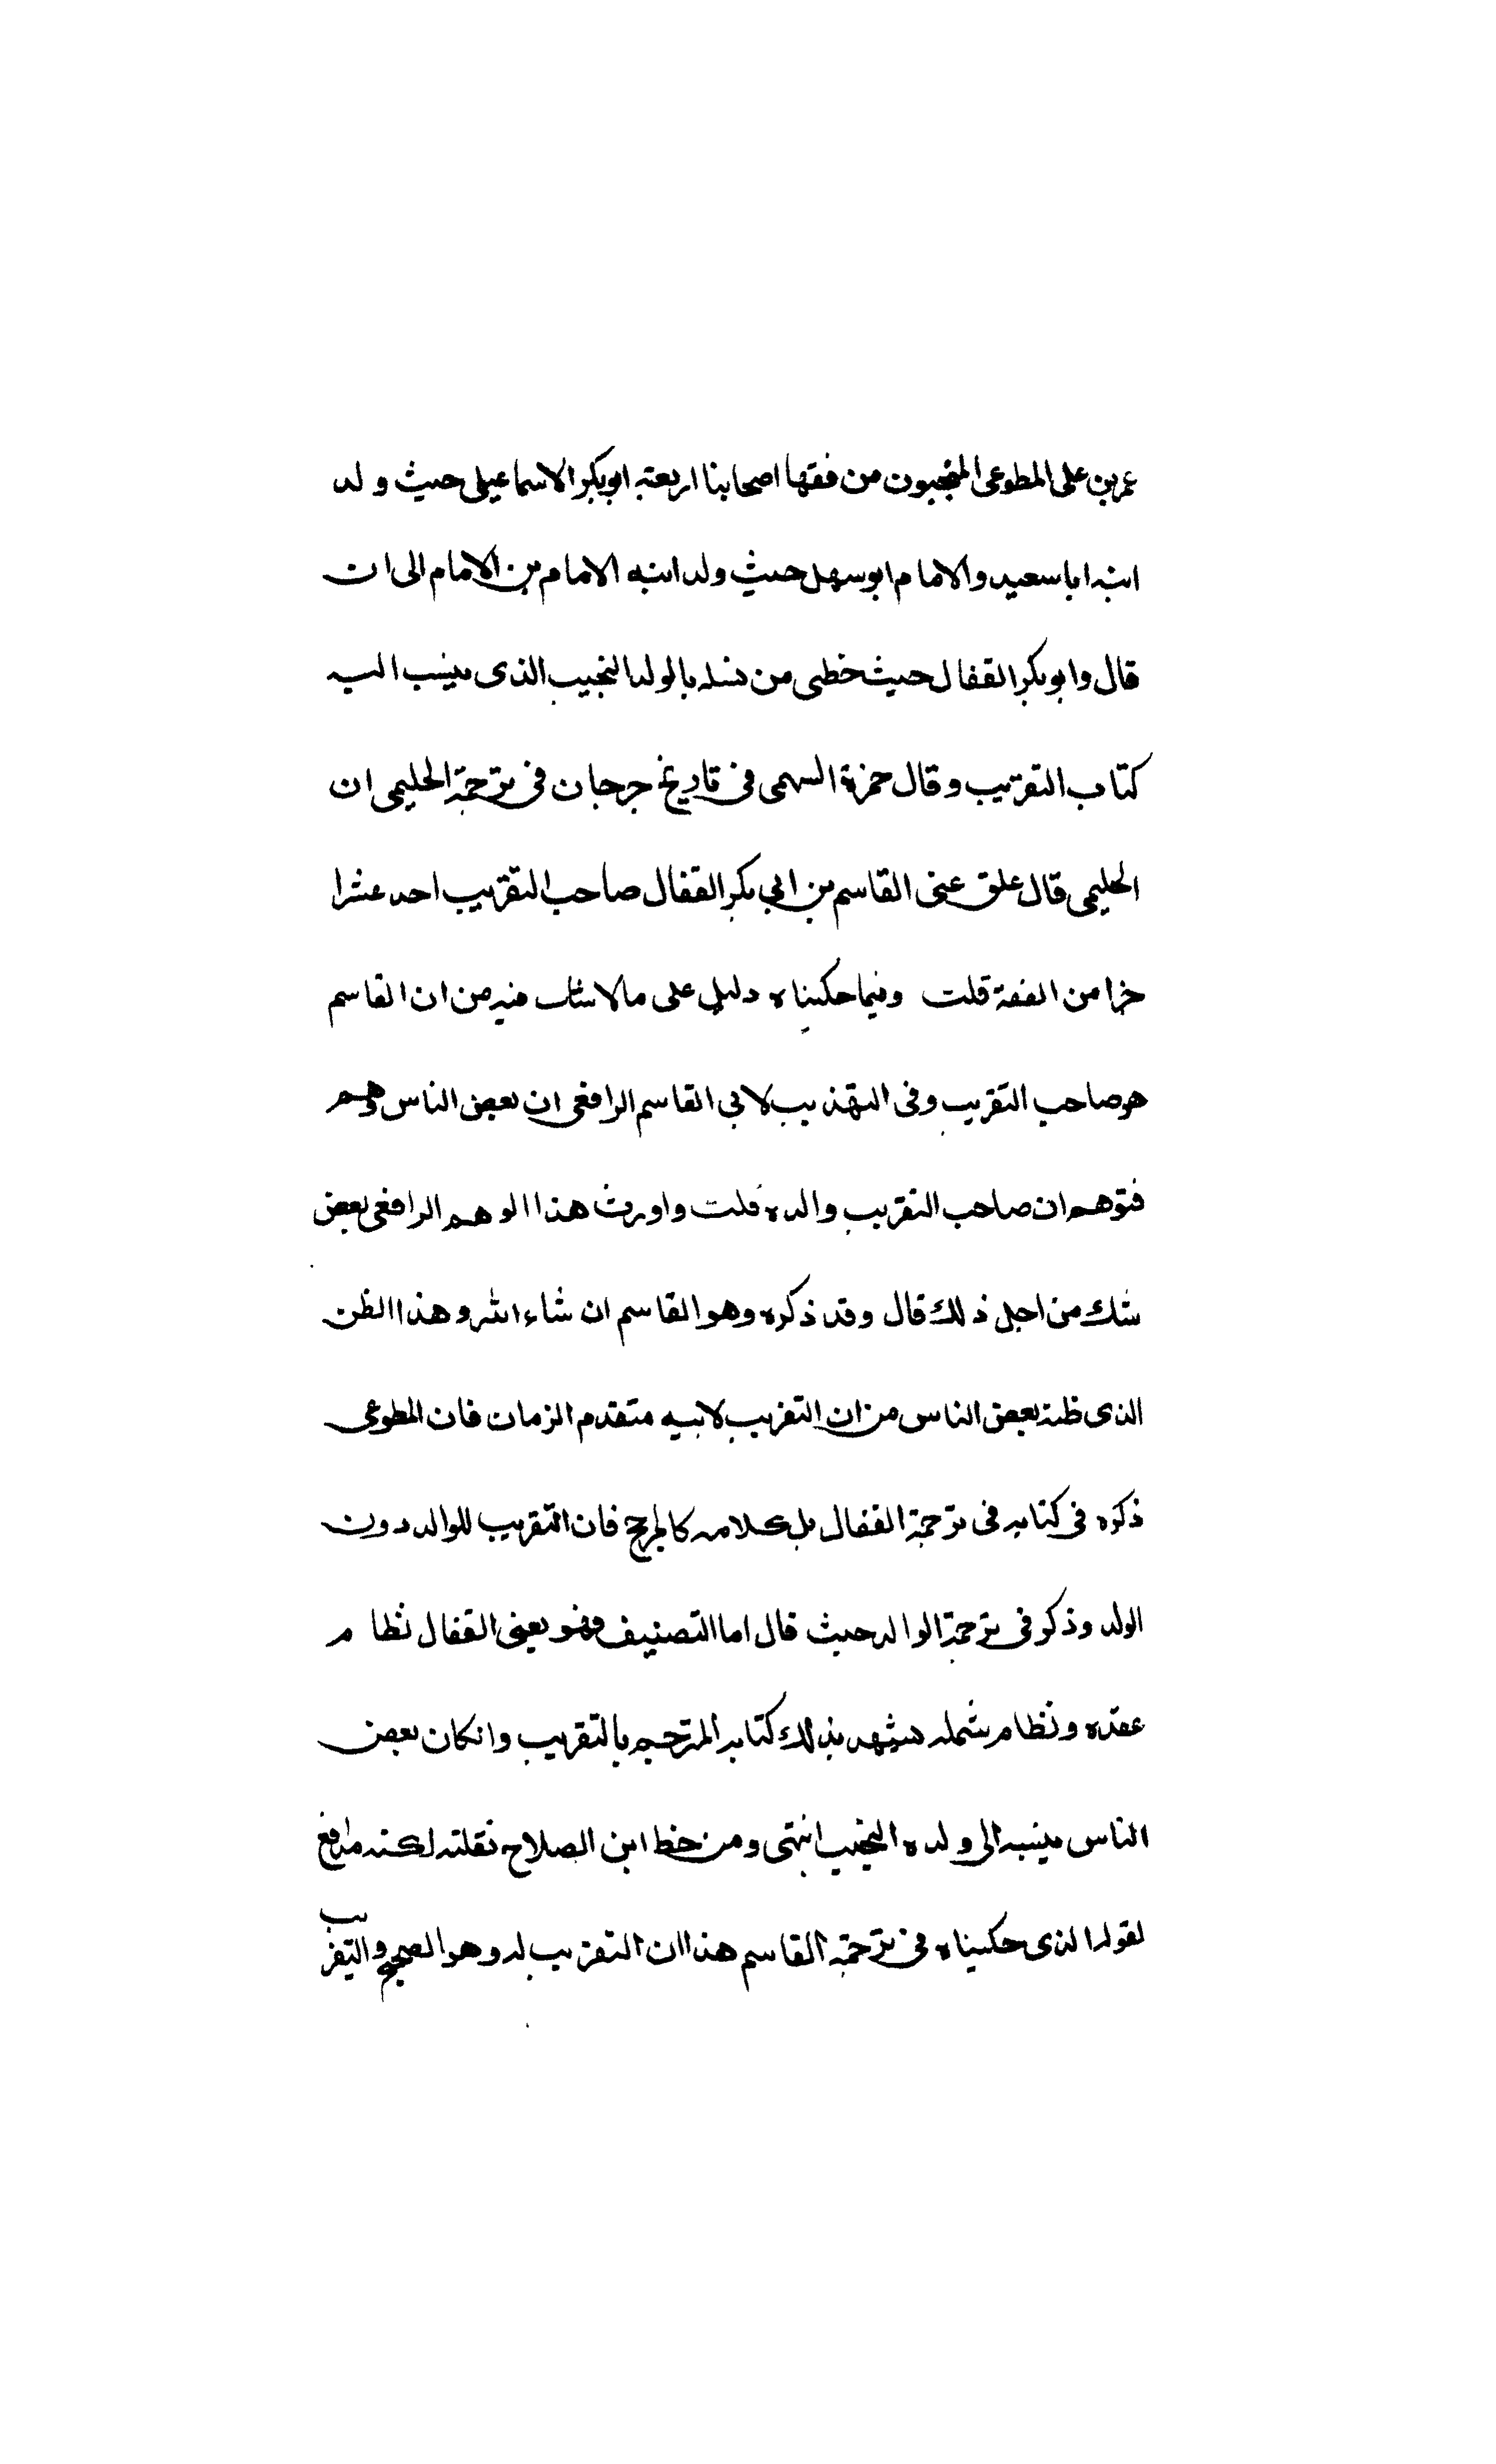 عمر بن على المطوعى المنجبون من فقها اصحابنا اربعة ابو بكر الاسماعيلى حيث ولد
ابنه ابا سعيد والامام ابو سهل حيث ولد ابنه الامام بن الامام الى ان
قال وابو بكر القفال حيث خطى من نسله بالولد النجيب الذى ينسب اليه
كتاب التقريب وقال حمزة السهمى فى تاريخ جرجان فى ترجمة الحليمى ان
الحليمى قال علق عنى القاسم بن ابى بكر القفال صاحب التقريب احد عشرا
جزا من الفقه قلت وفيما حكيناه دليل على ما لا شك فيه من ان القاسم
هو صاحب التقريب وفى التهذيب لابى القاسم الرافعى ان بعض الناس وهم
فتوهم ان صاحب التقريب والده قلت واورث هذا الوهم الرافعى بعض
شك من اجل ذلك قال وقد ذكره وهو القاسم ان شاء الله وهذا الظن
الذى ظنه بعض الناس من ان التقريب لابيه متقدم الزمان فان المطوعى
ذكره فى كتابه فى ترجمة القفال بل كلامه كالمرجح فان التقريب للوالد دون
الولد وذكر فى ترجمة الوالد حيث قال اما التصنيف فهو يعنى القفال نظام
عقده ونظام شمله يشهد بذلك كتابه المترجم بالتقريب وان كان بعض
الناس ينسبه الى ولده النجيب انتهى ومن خط ابن الصلاح نقلته لكنه مدافع
لقوله الذى حكيناه فى ترجمة القاسم هذا ان التقريب له وهو الصحيح والتقريب